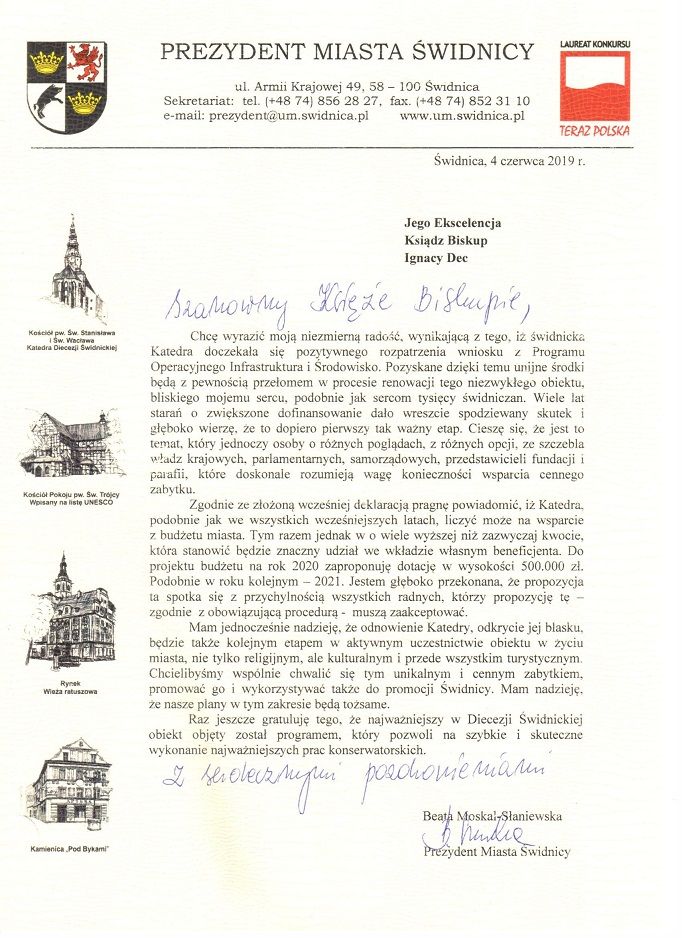 PREZYDENT MIASTA ŚWIDNICY
ul. Armii Krajowej 49, 58 – 100 Świdnica
Sekretariat: tel. (+48 74) 856 28 27, fax. (+48 74) 852 31 10
e-mail: prezydent@um.swidnica.pl www.um.swidnica.pl
LAUREAT KONKURSU
TERAZ POLSKA
Świdnica, 4 czerwca 2019 r.
Jego Ekscelencja
Ksiądz Biskup
Ignacy Dec
Szanowny Księże Biskupie,
Chcę wyrazić moją niezmierną radość, wynikającą z tego, iż świdnicka
Katedra doczekała się pozytywnego rozpatrzenia wniosku z Programu
Operacyjnego Infrastruktura i Środowisko. Pozyskane dzięki temu unijne środki
będą z pewnością przełomem w procesie renowacji tego niezwykłego obiektu,
bliskiego mojemu sercu, podobnie jak sercom tysięcy świdniczan. Wiele lat
starań o zwiększone dofinansowanie dało wreszcie spodziewany skutek i
głęboko wierzę, że to dopiero pierwszy tak ważny etap. Cieszę się, że jest to
temat, który jednoczy osoby o różnych poglądach, z różnych opcji, ze szczebla
władz krajowych, parlamentarnych, samorządowych, przedstawicieli fundacji i
parafii, które doskonale rozumieją wagę konieczności wsparcia cennego
zabytku.
Zgodnie ze złożoną wcześniej deklaracją pragnę powiadomić, iż Katedra,
podobnie jak we wszystkich wcześniejszych latach, liczyć może na wsparcie
z budżetu miasta. Tym razem jednak w o wiele wyższej niż zazwyczaj kwocie,
która stanowić będzie znaczny udział we wkładzie własnym beneficjenta. Do
projektu budżetu na rok 2020 zaproponuję dotację w wysokości 500.000 zł.
Podobnie w roku kolejnym – 2021. Jestem głęboko przekonana, że propozycja
ta spotka się z przychylnością wszystkich radnych, którzy propozycję tę –
zgodnie z obowiązującą procedurą - muszą zaakceptować.
Mam jednocześnie nadzieję, że odnowienie Katedry, odkrycie jej blasku,
będzie także kolejnym etapem w aktywnym uczestnictwie obiektu w życiu
miasta, nie tylko religijnym, ale kulturalnym i przede wszystkim turystycznym.
Chcielibyśmy wspólnie chwalić się tym unikalnym i cennym zabytkiem,
promować go i wykorzystywać także do promocji Świdnicy. Mam nadzieję,
że nasze plany w tym zakresie będą tożsame.
Raz jeszcze gratuluję tego, że najważniejszy w Diecezji Świdnickiej
obiekt objęty został programem, który pozwoli na szybkie i skuteczne
wykonanie najważniejszych prac konserwatorskich.
Z serdecznymi pozdrowieniami
Beata Moskal-Słaniewska
Prezydent Miasta Świdnicy
Kościół pw. Św. Stanisława
i Św. Wacława
Katedra Diecezji Świdnickiej
Kościół Pokoju pw. Św. Trójcy
Wpisany na listę UNESCO
Rynek
Wieża ratuszowa
Kamienica „Pod Bykami"